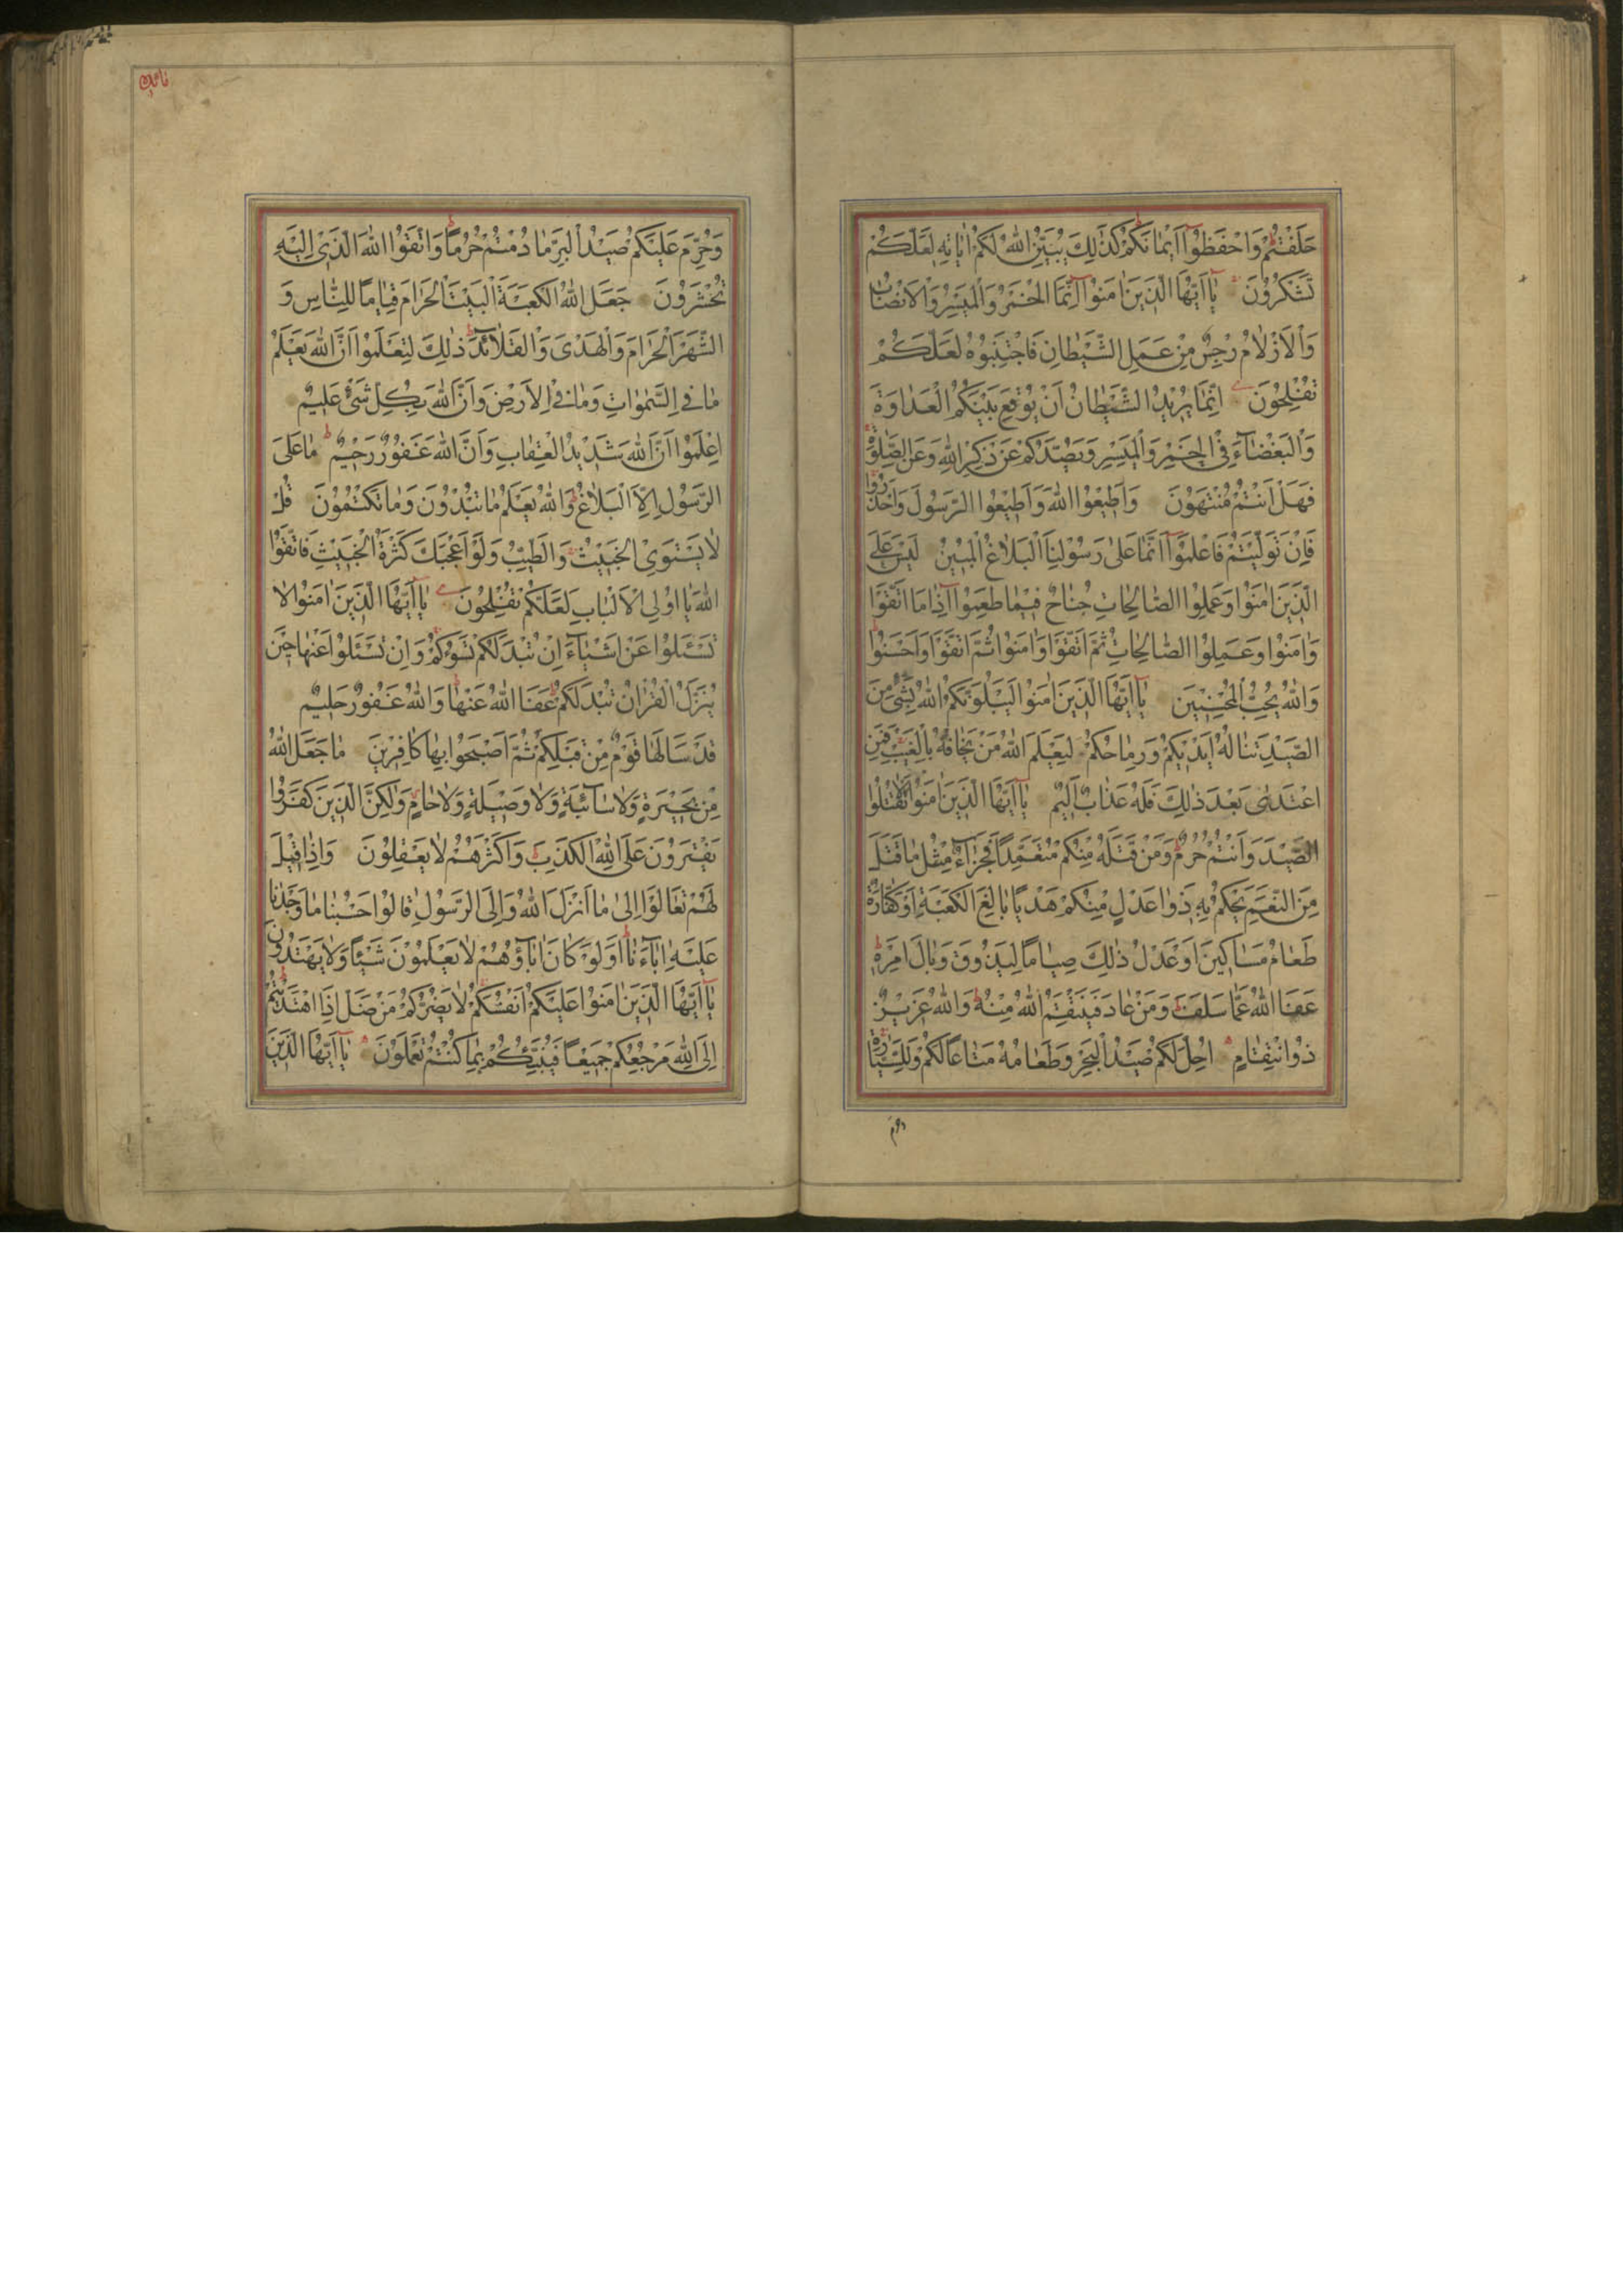 حَلَفْتُمْ وَاحْفَظُوٓا اَيْمَانَكُمْ كَذٰلِكَ يُبَيِّنُ اللهُ لَكُمْ اٰيَاتِهِ لَعَلَّكُمْ
تَشْكُرُونَ يَآ اَيُّهَا الَّذِينَ اٰمَنُوٓا اِنَّمَا الْخَمْرُ وَالْمَيْسِرُ وَالْاَنْصَابُ
وَالْاَزْلَامُ رِجْسٌ مِنْ عَمَلِ الشَّيْطَانِ فَاجْتَنِبُوهُ لَعَلَّكُمْ
تُفْلِحُونَ اِنَّمَا يُرِيدُ الشَّيْطَانُ اَنْ يُوقِعَ بَيْنَكُمُ الْعَدَاوَةَ
وَالْبَغْضَآءَ فِي الْخَمْرِ وَالْمَيْسِرِ وَيَصُدَّكُمْ عَنْ ذِكْرِ اللهِ وَعَنِ الصَّلٰوةِ
فَهَلْ اَنْتُمْ مُنْتَهُونَ وَاَطِيعُوا اللهَ وَاَطِيعُوا الرَّسُولَ وَاحْذَرُوا
فَاِنْ تَوَلَّيْتُمْ فَاعْلَمُوٓا اَنَّمَا عَلٰى رَسُولِنَا الْبَلَاغُ الْمُبِينُ لَيْسَ عَلَى
الَّذِينَ اٰمَنُوا وَعَمِلُوا الصَّالِحَاتِ جُنَاحٌ فِيمَا طَعِمُوٓا اِذَا مَا اتَّقَوْا
وَاٰمَنُوا وَعَمِلُوا الصَّالِحَاتِ ثُمَّ اتَّقَوْا وَاٰمَنُوا ثُمَّ اتَّقَوْا وَاَحْسَنُوا
وَاللهُ يُحِبُّ الْمُحْسِنِينَ يَآ اَيُّهَا الَّذِينَ اٰمَنُوا لَيَبْلُوَنَّكُمُ اللهُ بِشَيْءٍ مِنَ
الصَّيْدِ تَنَالُهُ اَيْدِيكُمْ وَرِمَاحُكُمْ لِيَعْلَمَ اللهُ مَنْ يَخَافُهُ بِالْغَيْبِ فَمَنِ
اعْتَدٰى بَعْدَ ذٰلِكَ فَلَهُ عَذَابٌ اَلِيمٌ يَآ اَيُّهَا الَّذِينَ اٰمَنُوا لَا تَقْتُلُوا
الصَّيْدَ وَاَنْتُمْ حُرُمٌ وَمَنْ قَتَلَهُ مِنْكُمْ مُتَعَمِّدًا فَجَزَآءٌ مِثْلُ مَا قَتَلَ
مِنَ النَّعَمِ يَحْكُمُ بِهِ ذَوَا عَدْلٍ مِنْكُمْ هَدْيًا بَالِغَ الْكَعْبَةِ اَوْ كَفَّارَةٌ
طَعَامُ مَسَاكِينَ اَوْ عَدْلُ ذٰلِكَ صِيَامًا لِيَذُوقَ وَبَالَ اَمْرِهِ
عَفَا اللهُ عَمَّا سَلَفَ وَمَنْ عَادَ فَيَنْتَقِمُ اللهُ مِنْهُ وَاللهُ عَزِيزٌ
ذُو انْتِقَامٍ اُحِلَّ لَكُمْ صَيْدُ الْبَحْرِ وَطَعَامُهُ مَتَاعًا لَكُمْ وَلِلسَّيَّارَةِ
وَحُرِّمَ عَلَيْكُمْ صَيْدُ الْبَرِّ مَا دُمْتُمْ حُرُمًا وَاتَّقُوا اللهَ الَّذِي اِلَيْهِ
تُحْشَرُونَ جَعَلَ اللهُ الْكَعْبَةَ الْبَيْتَ الْحَرَامَ قِيَامًا لِلنَّاسِ وَ
الشَّهْرَ الْحَرَامَ وَالْهَدْيَ وَالْقَلَآئِدَ ذٰلِكَ لِتَعْلَمُوا اَنَّ اللهَ يَعْلَمُ
مَا فِي السَّمٰوَاتِ وَمَا فِي الْاَرْضِ وَاَنَّ اللهَ بِكُلِّ شَيْءٍ عَلِيمٌ
اِعْلَمُوا اَنَّ اللهَ شَدِيدُ الْعِقَابِ وَاَنَّ اللهَ غَفُورٌ رَحِيمٌ مَا عَلَى
الرَّسُولِ اِلَّا الْبَلَاغُ وَاللهُ يَعْلَمُ مَا تُبْدُونَ وَمَا تَكْتُمُونَ قُلْ
لَا يَسْتَوِي الْخَبِيثُ وَالطَّيِّبُ وَلَوْ اَعْجَبَكَ كَثْرَةُ الْخَبِيثِ فَاتَّقُوا
اللهَ يَا اُولِي الْاَلْبَابِ لَعَلَّكُمْ تُفْلِحُونَ يَآ اَيُّهَا الَّذِينَ اٰمَنُوا لَا
تَسْئَلُوا عَنْ اَشْيَآءَ اِنْ تُبْدَ لَكُمْ تَسُؤْكُمْ وَاِنْ تَسْئَلُوا عَنْهَا حِينَ
يُنَزَّلُ الْقُرْاٰنُ تُبْدَ لَكُمْ عَفَا اللهُ عَنْهَا وَاللهُ غَفُورٌ حَلِيمٌ
قَدْ سَاَلَهَا قَوْمٌ مِنْ قَبْلِكُمْ ثُمَّ اَصْبَحُوا بِهَا كَافِرِينَ مَا جَعَلَ اللهُ
مِنْ بَحِيرَةٍ وَلَا سَآئِبَةٍ وَلَا وَصِيلَةٍ وَلَا حَامٍ وَلٰكِنَّ الَّذِينَ كَفَرُوا
يَفْتَرُونَ عَلَى اللهِ الْكَذِبَ وَاَكْثَرُهُمْ لَا يَعْقِلُونَ وَاِذَا قِيلَ
لَهُمْ تَعَالَوْا اِلٰى مَا اَنْزَلَ اللهُ وَاِلَى الرَّسُولِ قَالُوا حَسْبُنَا مَا وَجَدْنَا
عَلَيْهِ اٰبَآءَنَا اَوَلَوْ كَانَ اٰبَآؤُهُمْ لَا يَعْلَمُونَ شَيْئًا وَلَا يَهْتَدُونَ
يَآ اَيُّهَا الَّذِينَ اٰمَنُوا عَلَيْكُمْ اَنْفُسَكُمْ لَا يَضُرُّكُمْ مَنْ ضَلَّ اِذَا اهْتَدَيْتُمْ
اِلَى اللهِ مَرْجِعُكُمْ جَمِيعًا فَيُنَبِّئُكُمْ بِمَا كُنْتُمْ تَعْمَلُونَ يَآ اَيُّهَا الَّذِينَ